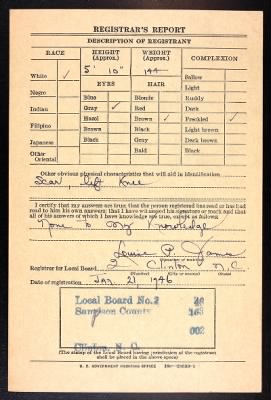 REGISTRAR'S REPORT
DESCRIPTION OF REGISTRANT
RACE
HEIGHT (Approx.)
WEIGHT (Approx.)
COMPLEXION
White ✓
5' 10"
144
Sallow
EYES
HAIR
Light
Negro
Blue
Blonde
Ruddy
Indian
Gray ✓
Red
Dark
Hazel
Brown ✓
Freckled ✓
Filipino
Brown
Black
Light brown
Japanese
Black
Gray
Dark brown
Other Oriental
Bald
Black
Other obvious physical characteristics that will aid in identification
Scar, left knee
I certify that my answers are true; that the person registered has read or has had
read to him his own answers; that I have witnessed his signature or mark and that
all of his answers of which I have knowledge are true, except as follows:
None to my knowledge
Registrar for Local Board 2 Clinton N.C.
Date of registration Jan. 21, 1946
Local Board No. 2
Sampson County 163
002
Clinton, N. C.
(The stamp of the Local Board having jurisdiction of the registrant
shall be placed in the above space.)
U. S. GOVERNMENT PRINTING OFFICE